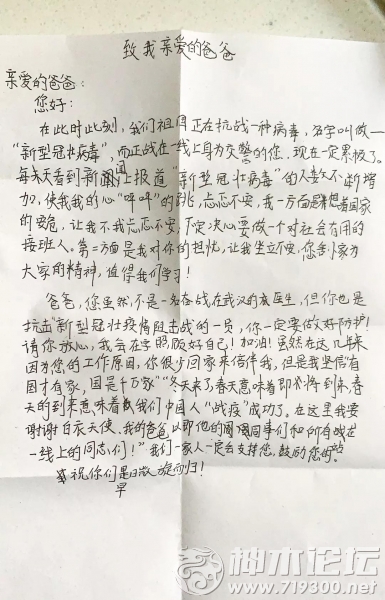 致我亲爱的爸爸
亲爱的爸爸:
您好:
在此时此刻,我们祖国正在抗战一种病毒,名字叫做
“新型冠壮病毒”,而正战在一线上身为交警的您、现在一定累极了。
每天看到新闻上报道“新型冠壮病毒”的人数不断增
加,使我我的心“呯呯”的跳,忐忑不安,我一方面是想着国家
的安危,让我不我忐忑不安,下定决心要做一个对社会有用的
接班人。第二方面是我对你的担忧,让我坐立不安,您舍小家为
大家的精神,值得我们学习!
爸爸,您虽然不是一名奋战在武汉的医生,但你也是
抗击“新型冠壮疫情阻击战的一员,你一定要做好防护!
请你放心,我会在家照顾好自己!加油!虽然在这几年来
因为您的工作原因,你很少回家来倍伴我,但是我坚信有
国才有家,国是千万家”“冬天来了春天意味着即将到来,春
天的到来意味着我们中国人“战疫”成功了。在这里我要
谢谢白衣天使、我的爸爸以即他的同事们和所有战在
一线上的同志们!”我们一家人一定会支持您,鼓励您的
祝你们是早日凯旋而归!
神木论坛
www.719300.net